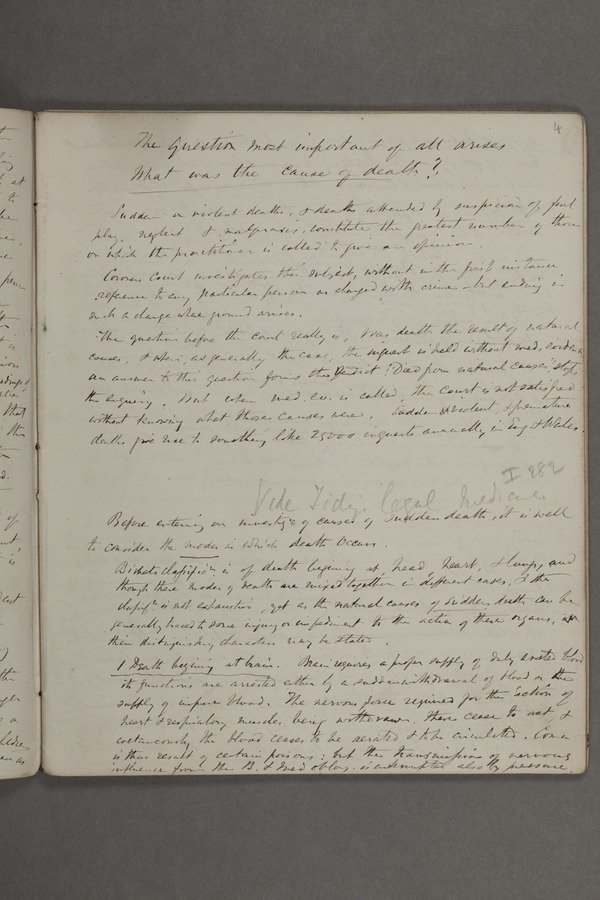 4
The Question most important of all arises
What was the cause of death?
Sudden or violent deaths, & deaths attended by suspicion of foul
play, neglect & malpraxis, constitute the greatest number of those
on which the practitioner is called to give an opinion.
Coroners Court investigates this subject, without in the first instance
reference to any particular person as charged with crime - but ending in
such a charge where ground arises.
The question before the court really is, Was death the result of natural
causes, & when, as generally the case, the inquest is held without med. evidence
an answer to this question forms the Verdict: "Died from natural causes", stops
the enquiry. But when med. ev. is called, the Court is not satisfied
without knowing what those causes were. Sudden & violent, & premature
deaths give rise to something like 25000 inquests annually in Eng & Wales.
I 282
Vide Tidy's legal Medicine
Before entering on investig.n of causes of Sudden death, it is well
to consider the modes in which death occurs.
Bichat's classific.n is of death beginning at, head, heart, & lungs, and
though these modes of death are mixed together in different cases, & the
classif.n is not exhaustive, yet as the natural causes of sudden death can be
generally traced to some injury or impediment to the action of these organs,
their distinguishing characters may be stated.
1 Death beging at brain. Brain requires a proper supply of duly aerated blood
its functions are arrested either by a sudden withdrawal of blood or the
supply of impure blood. The nervous force required for the action of
heart & respiratory muscles being withdrawn, these cease to act &
the blood ceases to be aerated & to be circulated. Coma
is thus result of certain poisons: but the transmission of nervous
influence from the B. & Med oblong. is interrupted also by pressure,